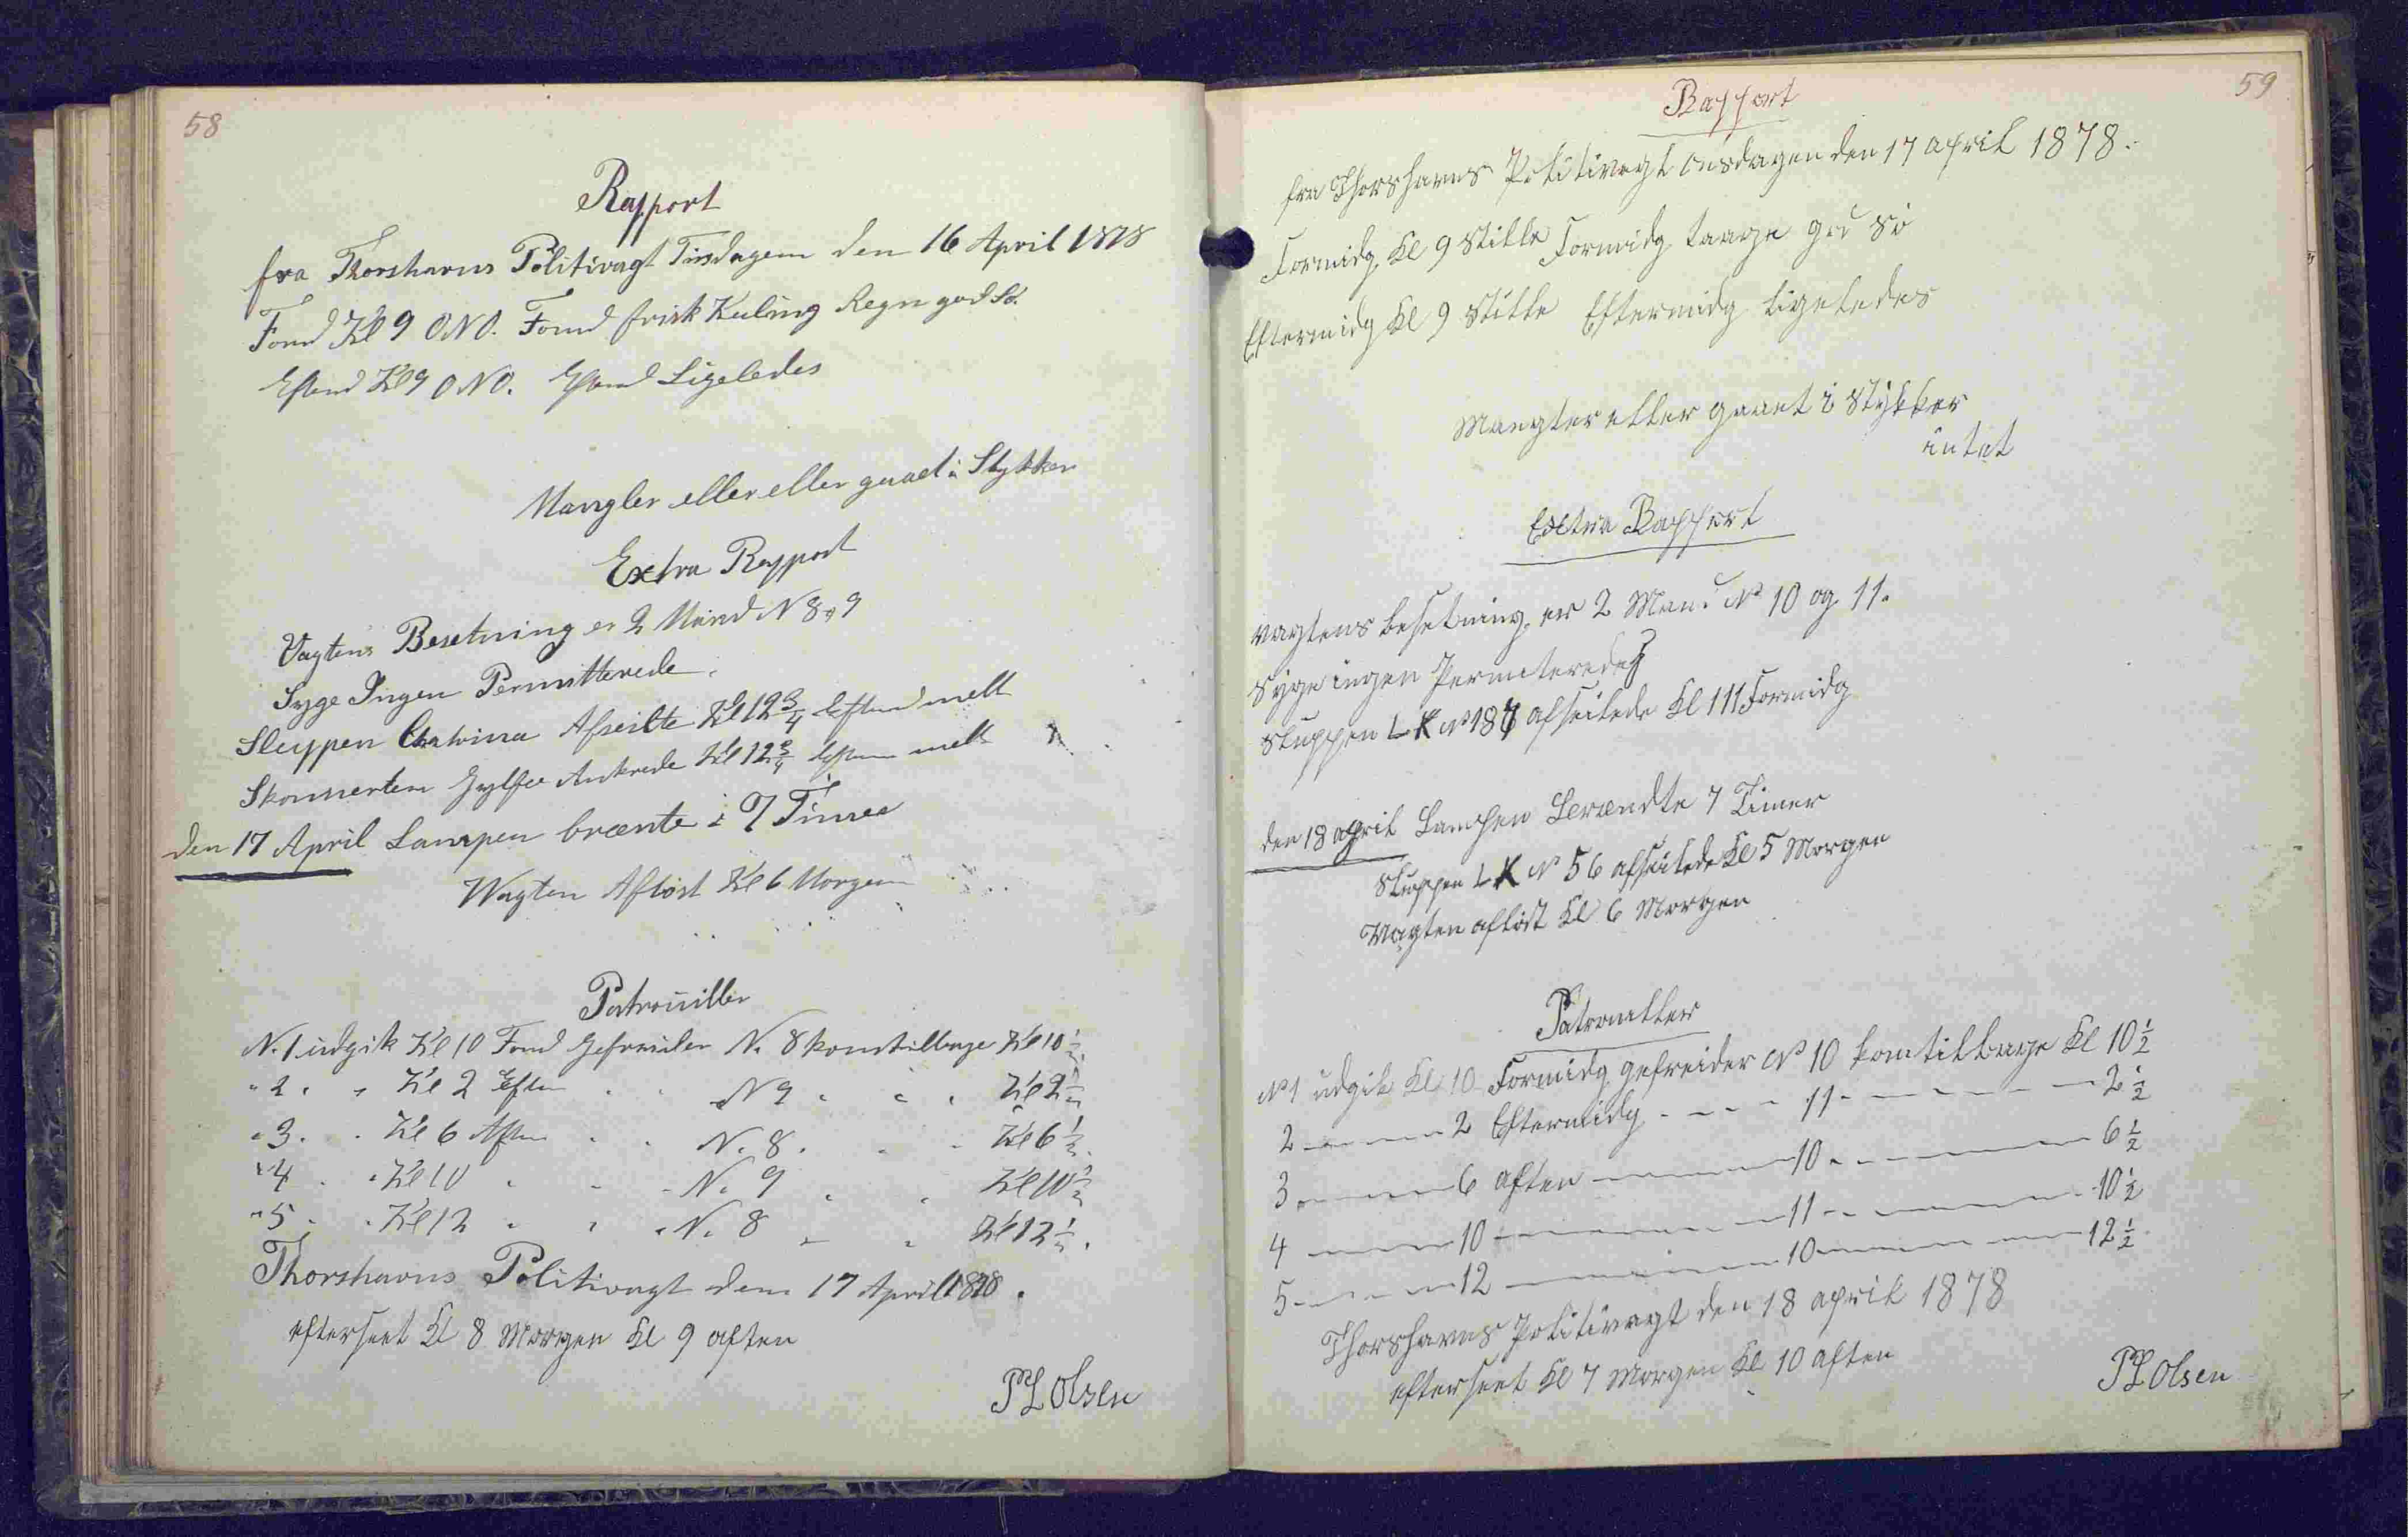 58
Rapport
fra Thorshavns Politivagt Tirsdagen den 16 April 1878
Formd Kl 9 ONO. Formd frisk Kuling Regn god Sö.
Eftmd Kl 9 ONO. Eftmd Ligeledes
Mangler eller eller gaaet i Stykker
Extra Rapport
Vagtens Besetning er 2 Mand N 8 & 9
Syge Ingen Permitterede.
Sluppen Afseilte Kl 12 3/4 Eftmd
Skonnerten Ankrede Kl 12 3/4
den 17 April Lampen brænte i 7 Timer
Wagten Aflöst Kl 6 Morgen
Patrouiller
N. 1 udgik Kl 10 Formd Gefreider N. 8 kom tilbage Kl 10 1/2
" 2. " Kl 2 Eftm " " N 9 " " " Kl 2 1/2
" 3. " Kl 6 Aften " " N. 8. " " Kl 6 1/2
" 4 " " Kl 10 " " " N. 9 " " Kl 10 1/2
" 5 " " Kl 12 " " " N. 8 " " Kl 12 1/2.
Thorshavns Politivagt den 17 April 1878.
efterseet Kl 8 Morgen Kl 9 aften
PL Olsen
59
Rapport
fra Thorshavns Politivagt onsdagen den 17 april 1878.
Formidg Kl 9 Stille Formidg taage god Sö
Eftermidg Kl 9 Stille Eftermidg ligeledes
Mangler eller gaaet i Stykker
intet
Extra Rapport
vagtens besetning er 2 Mand No 10 og 11.
Syge ingen Permiterede
Sluppen LK No 187 afseilede Kl 11 Formidg
den 18 april Lampen Berændte 7 Timer
Sluppen LK No 56 afseilede Kl 5 Morgen
Vagten aflöst Kl 6 Morgen
Patrouller
No 1 udgik Kl 10 Formidg gefreider No 10 kom tilbage Kl 10 1/2
2 — — 2 Eftermidg - - - - 11 - — — — 2 1/2
3 — — 6 aften — — 10 - - — — 6 1/2
4 — — 10 — — — 11 - - — — 10 1/2
5 — — 12 — — — 10 — — — 12 1/2
Thorshavns Politivagt den 18 april 1878
efterseet Kl 7 Morgen Kl 10 Aften
PL Olsen